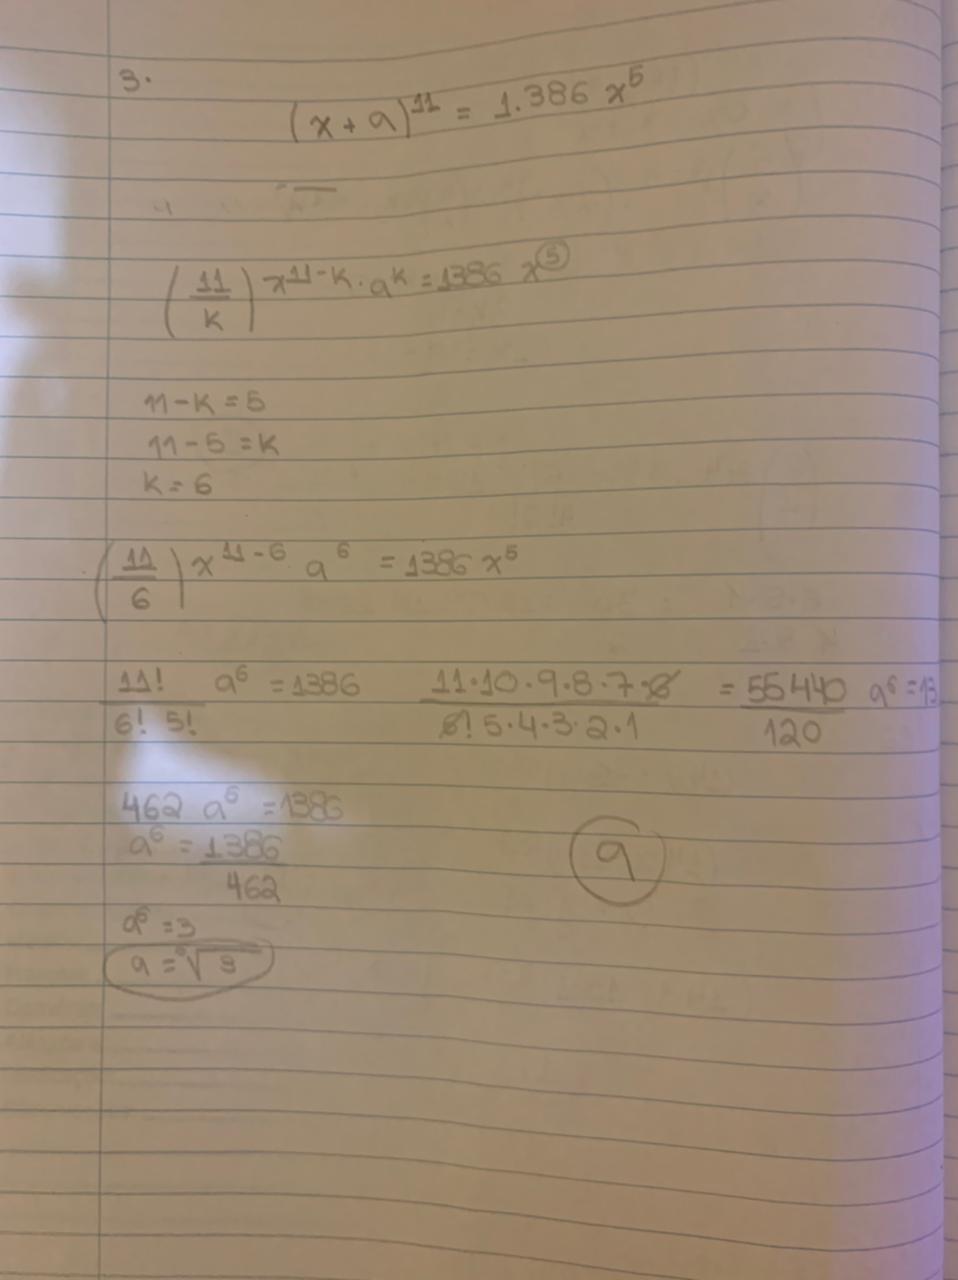 3.
(x + a)^11 = 1.386 x^5
(11/k) x^11-k . a^k = 1386 x^5
11 - k = 5
11 - 5 = k
k = 6
(11/6) x^11-6 a^6 = 1386 x^5
11!/6! 5! a^6 = 1386 11.10.9.8.7.6/6! 5.4.3.2.1 = 55440/120 a^6 = 13
462 a^6 = 1386
a^6 = 1386/462
a^6 = 3
a = ⁶√3
a